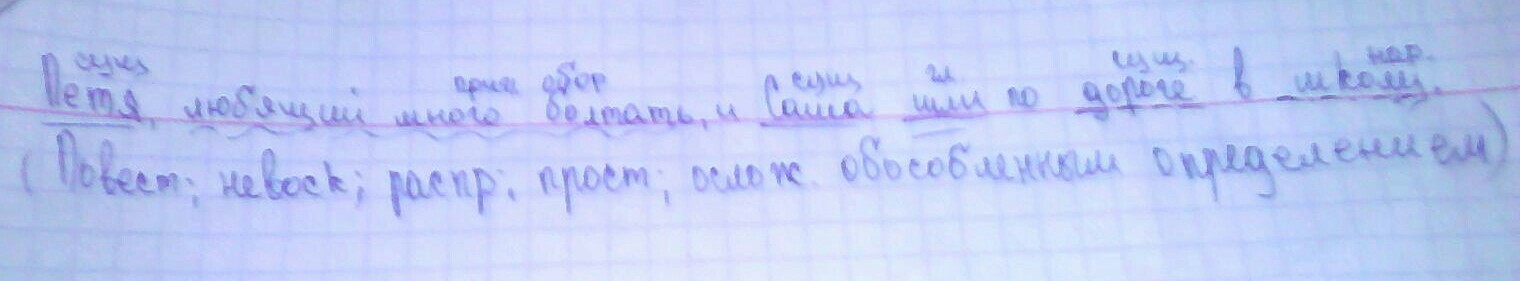 сущ прич обор сущ гл сущ. нар.
Петя, любящий много болтать, и Саша шли по дороге в школу.
(Повест; невоск; распр; прост; ослож. обособленным определением)